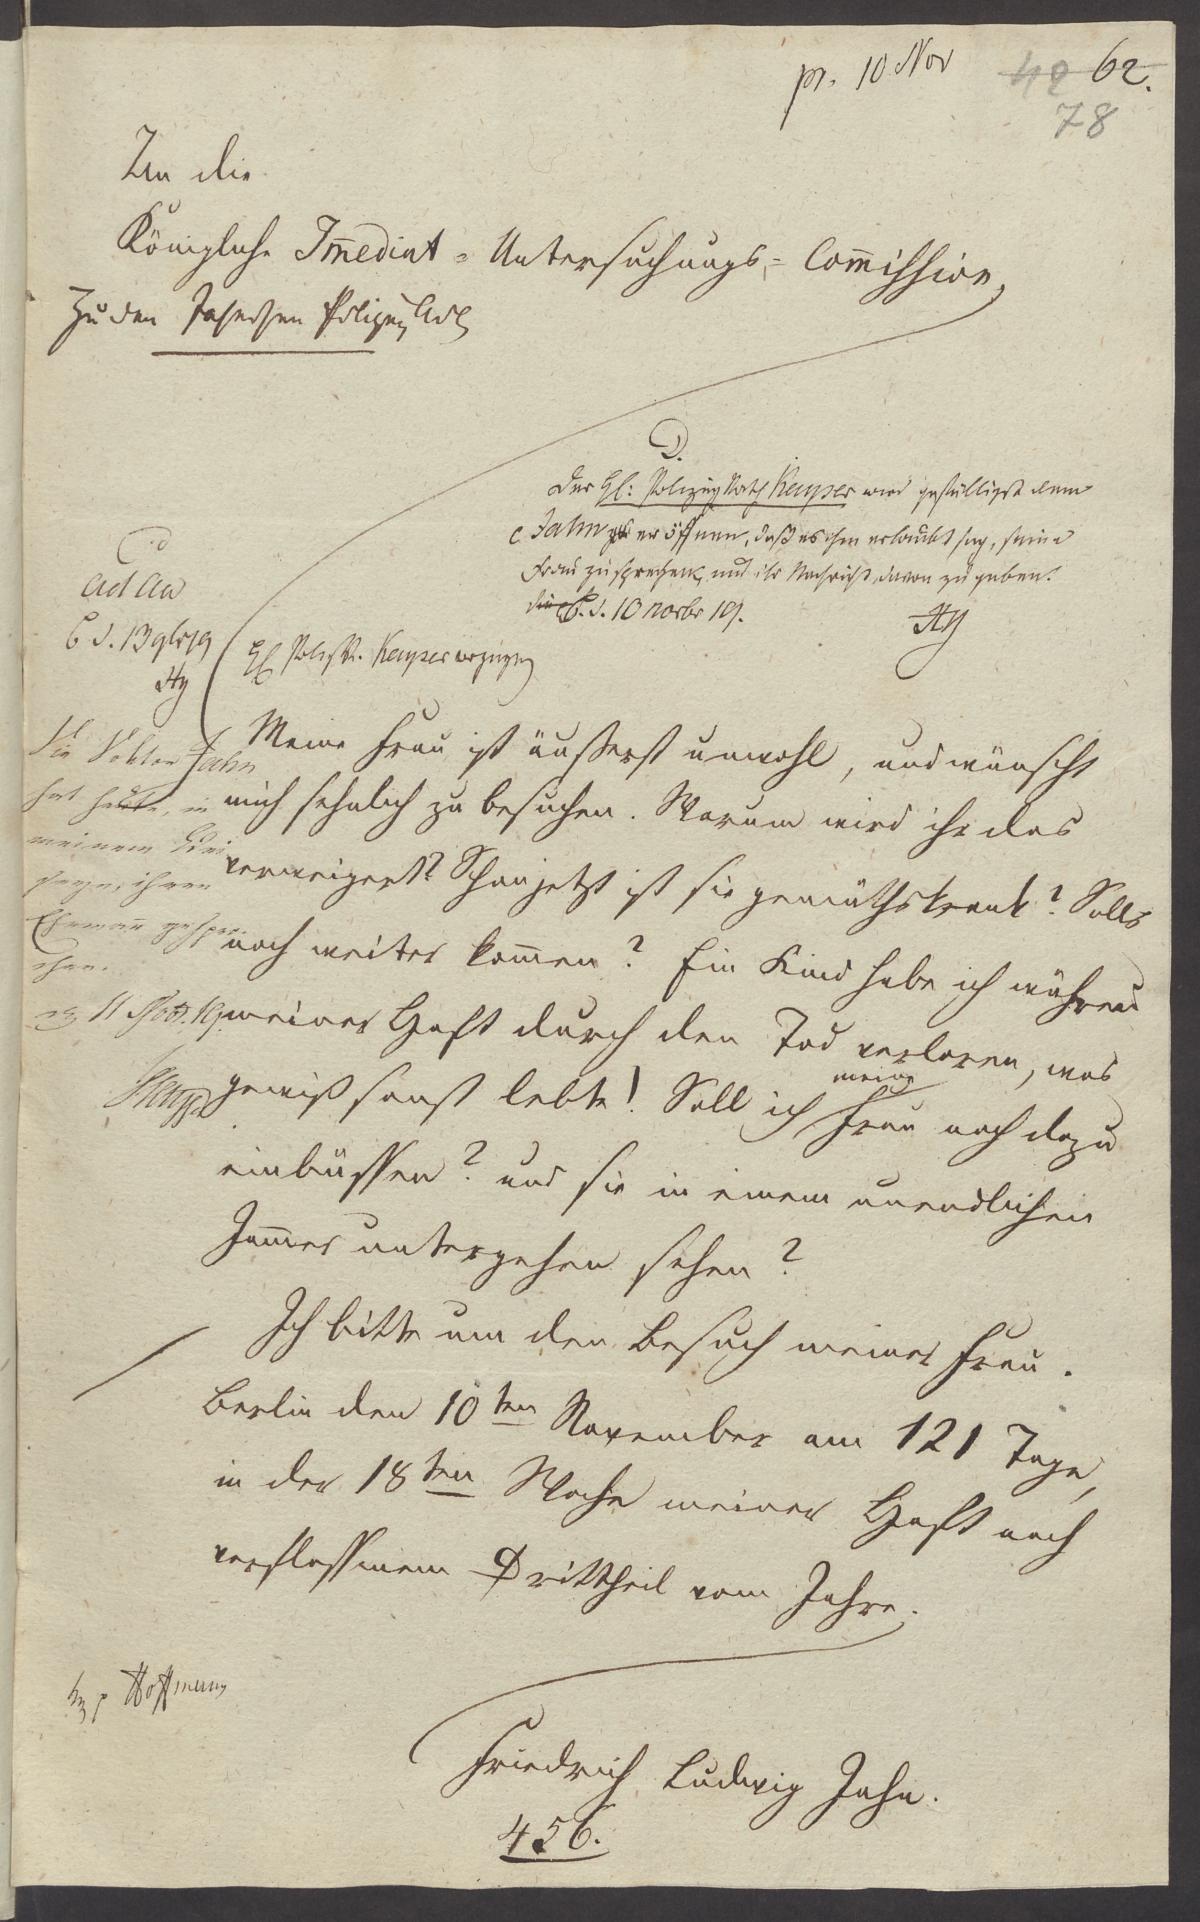 pr. 10 Nov
42 62.
78
An die
Königliche Im̄ediat-Untersuchungs-Com̄ission,
Zu den Jahnschen Polizey Act
D.
Der HE: Polizey Rath Kayser wird gefälligst dem
c Jahn eröffnen, daß es ihm erlaubt sey, seine
Frau zu sprechen, und ihr Nachricht davon zu geben.
B. d. 10 Novbr 19.
Hff
ad acta
B d. 13 9br 19
Hff
HE Polizey R. Kayser vorzuzeigen
Die Doktor Jahn
hat heute, in
meinem Bei
seyn, ihren
Eheman̄ gespro-
chen.
11 Nov. 19.
Kayser
Meine Frau ist äußerst unwohl, und wünscht
mich sehnlich zu besuchen. Warum wird ihr das
verweigert? Schon jetzt ist sie gemüthskrank? Solls
noch weiter kom̄en? Ein Kind habe ich während
meiner Haft durch den Tod verloren, was
gewiß sonst lebte! Soll ich meine Frau noch dazu
einbüssen? und sie in einem unendlichen
Jam̄er untergehen sehen?
Ich bitte um den Besuch meiner Frau.
Berlin den 10ten November am 121 Tage,
in der 18ten Woche meiner Haft nach
verflossenem Drittheil vom Jahre.
Hoffmann
Friedrich Ludwig Jahn.
456.